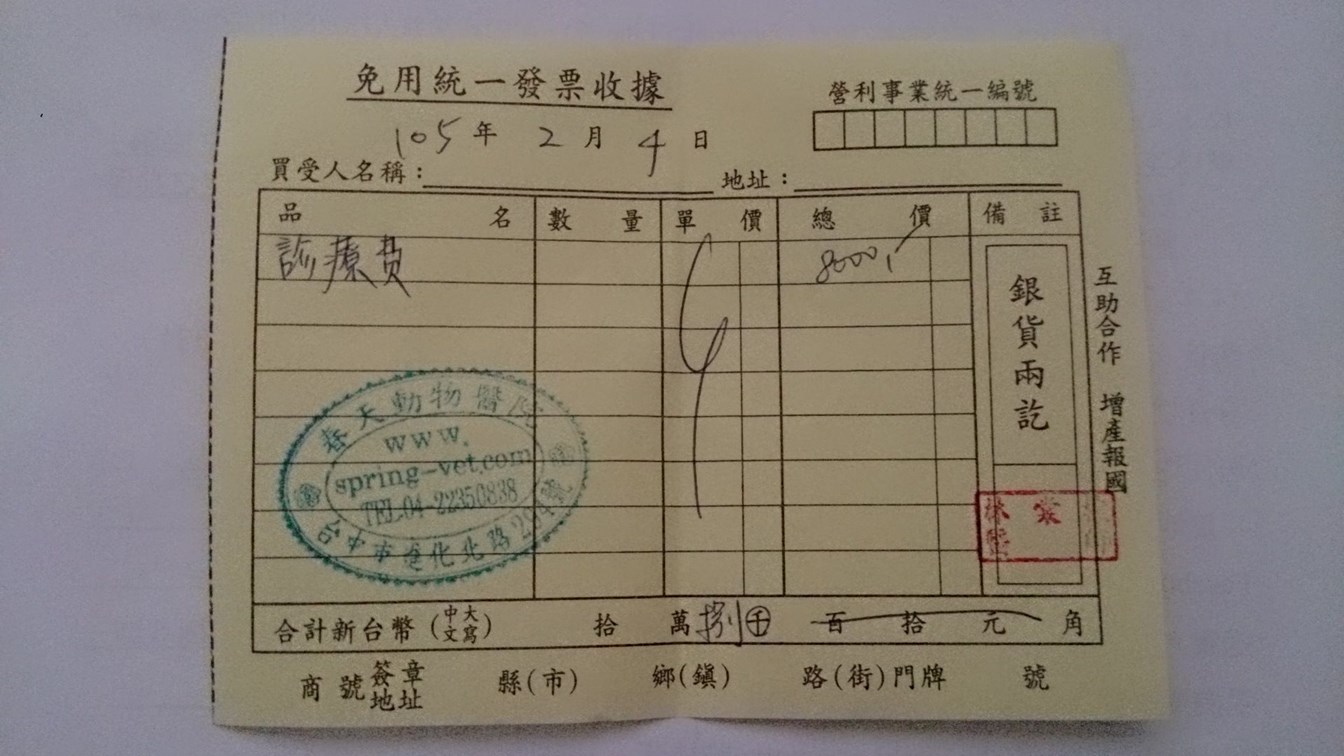 免用統一發票收據
營利事業統一編號
105年 2月 4日
買受人名稱： 地址：
品名 數量 單價 總價 備註
診療费 8000,
銀貨兩訖
互助合作 增產報國
春天動物醫院
www.
spring-vet.com
TEL:04-22350838
台中市進化北路294號
合計新台幣(中文大寫) 拾 萬 捌 千 百 拾 元 角
商號簽章地址 縣(市) 鄉(鎮) 路(街)門牌 號